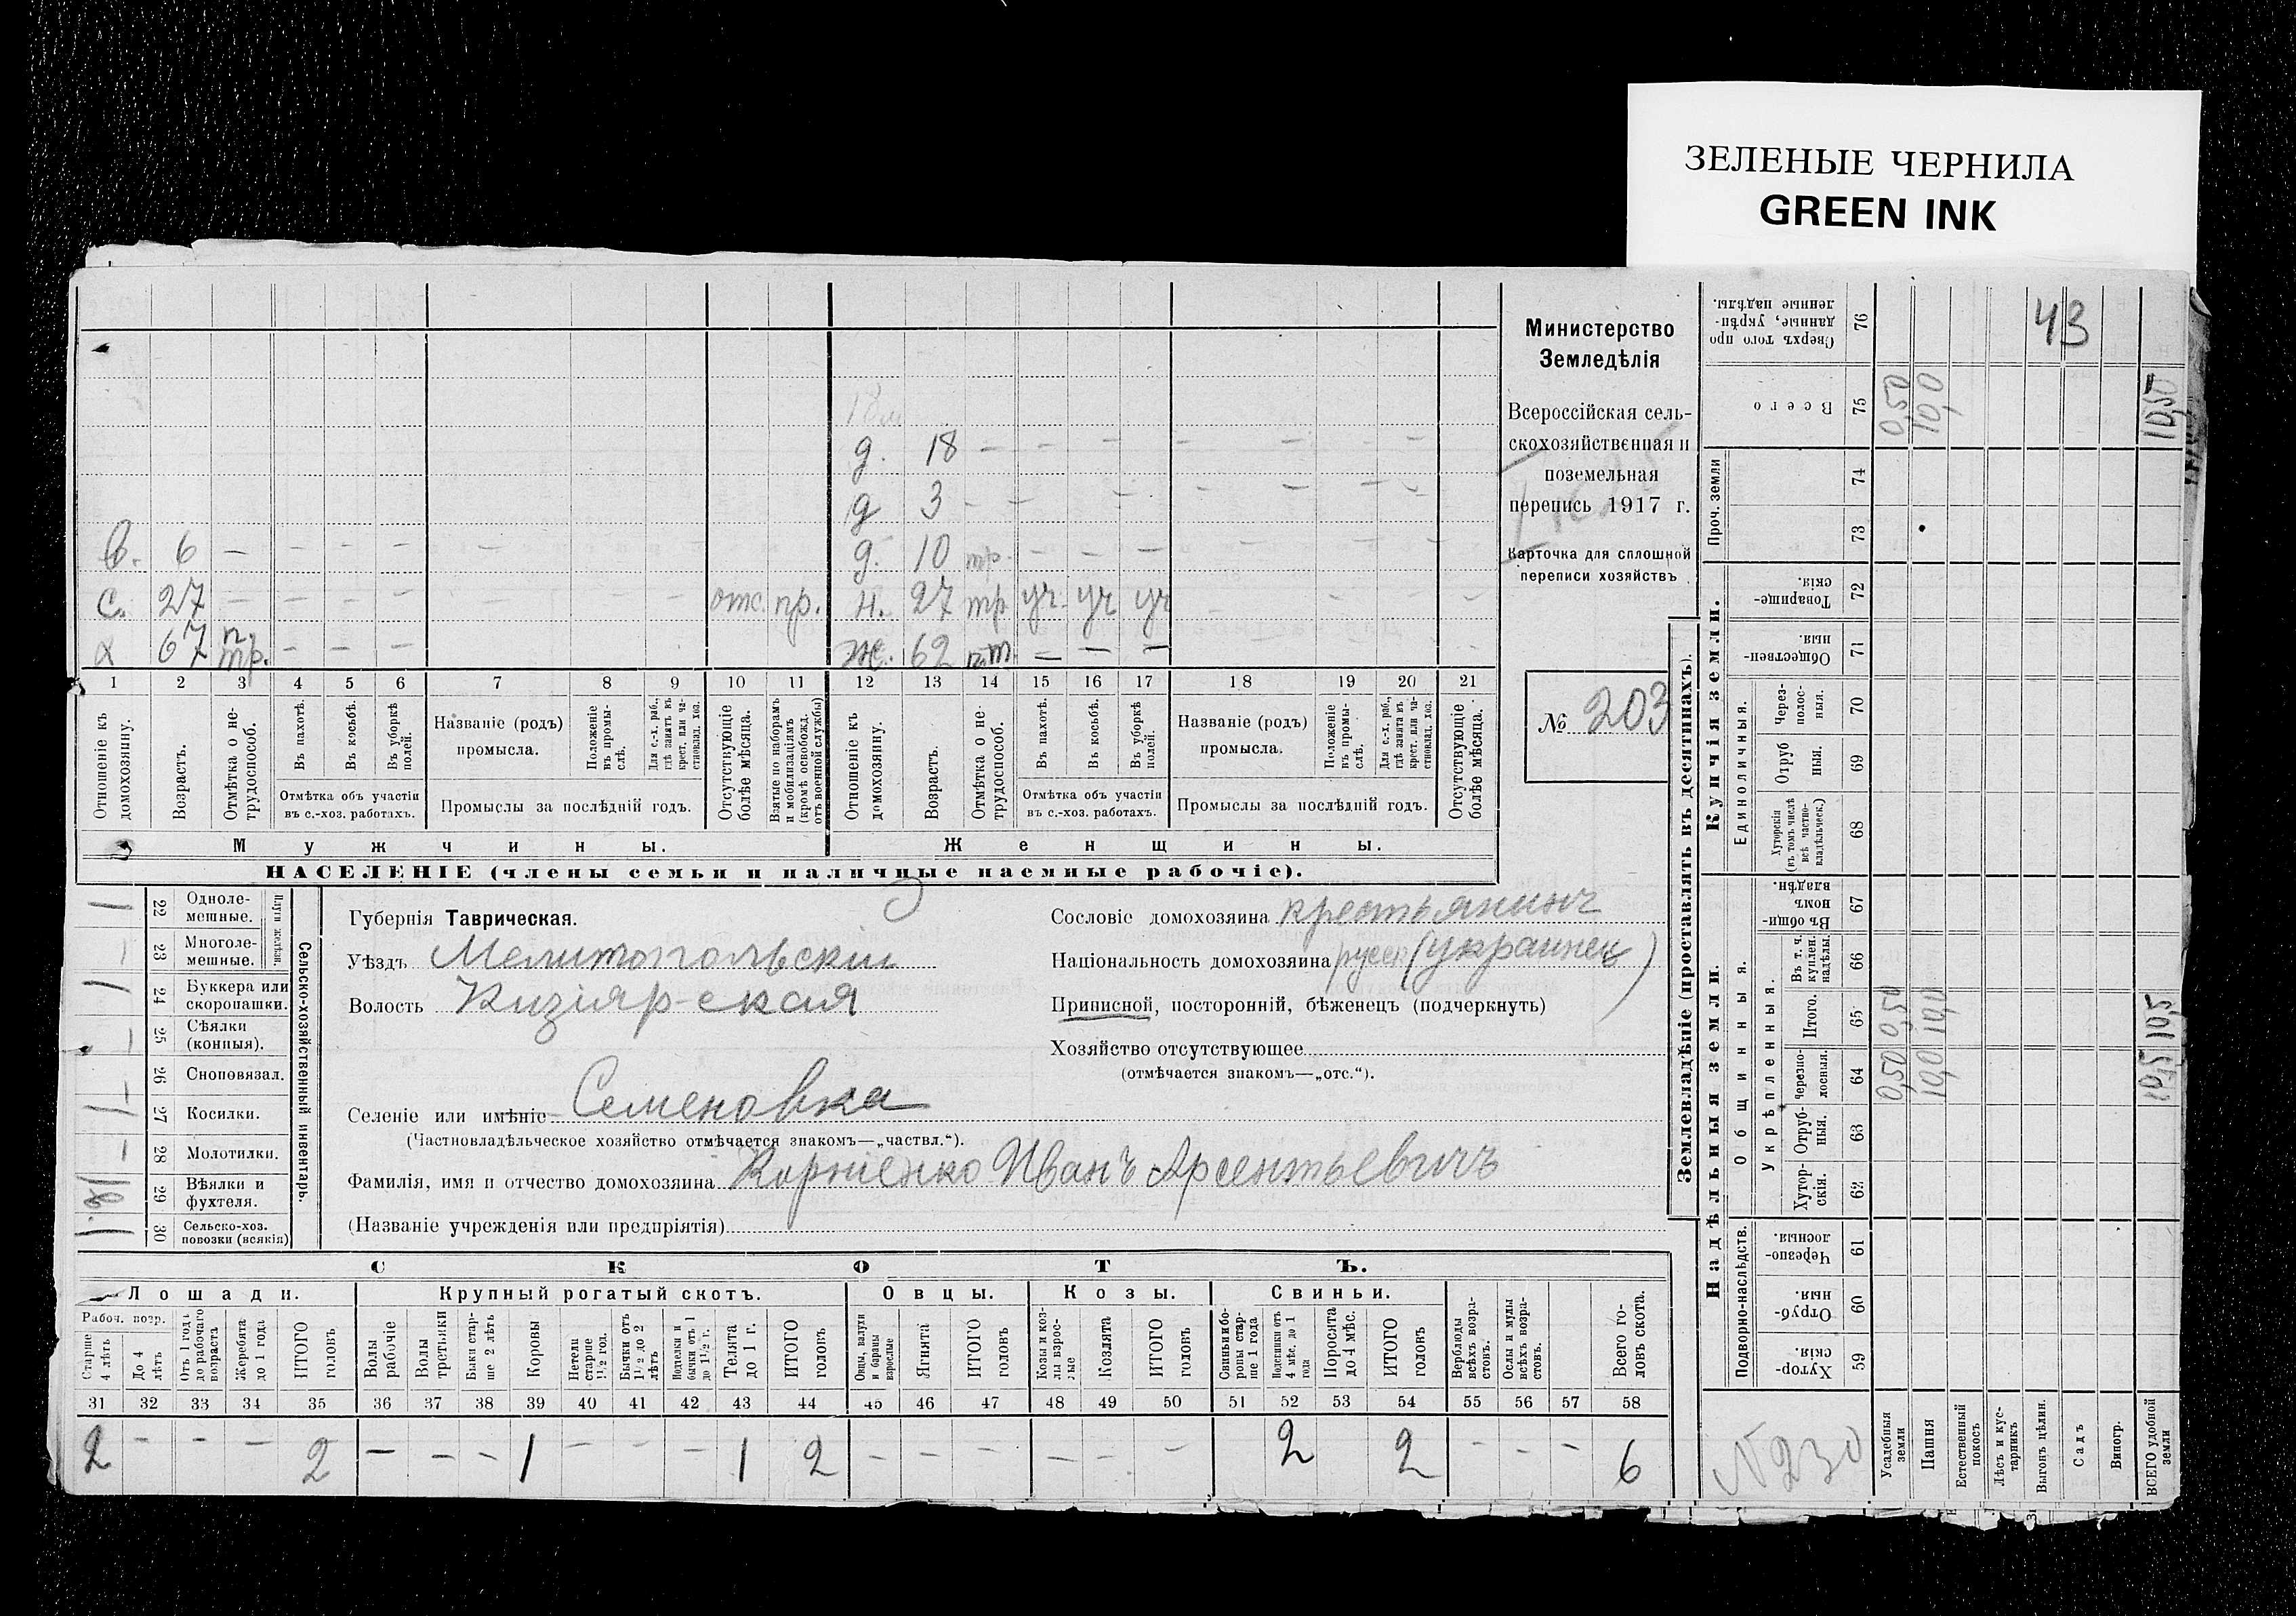 ЗЕЛЕНЫЕ ЧЕРНИЛА
GREEN INK
Министерство
Земледѣлія
Всероссійская сель-
скохозяйственная и
поземельная
перепись 1917 г.
Карточка для сплошной
переписи хозяйствъ
№ 203
д. 18 — — — — — — — —
д 3 — — — — — — —
в. 6 — — — — — — — — д. 10 тр. — — — — — —
с. 27 — — — — — — — отс. пр. н. 27 тр уч. уч уч — — — —
х 67 п. тр. — — — ж. 62 п.т. — — —
1 2 3 4 5 6 7 8 9 10 11 12 13 14 15 16 17 18 19 20 21
Отношеніе къ домохозяину.
Возрастъ.
Отмѣтка о не-трудоспособ.
Въ пахотѣ.
Въ косьбѣ.
Въ уборкѣ полей.
Отмѣтка объ участіи въ с.-хоз. работахъ.
Названіе (родъ) промысла.
Положеніе въ промы-слѣ.
Для с.-х. раб., гдѣ занятъ въ крест. или ча-стновлад. хоз.
Промыслы за послѣдній годъ.
Отсутствующіе болѣе мѣсяца.
Взятые по наборамъ и мобилизаціямъ (кромѣ освобожд. отъ военной службы)
Отношеніе къ домохозяину.
Возрастъ.
Отмѣтка о не-трудоспособ.
Въ пахотѣ.
Въ косьбѣ.
Въ уборкѣ полей.
Отмѣтка объ участіи въ с.-хоз. работахъ.
Названіе (родъ) промысла.
Положеніе въ промы-слѣ.
Для с.-х. раб., гдѣ занята въ крест. или ча-стновлад. хоз.
Промыслы за послѣдній годъ.
Отсутствующіе болѣе мѣсяца.
Мужчины. Женщины.
НАСЕЛЕНІЕ (члены семьи и наличные наемные рабочіе).
Сельско-хозяйственный инвентарь.
Плуги желѣзн.
1 22 Одноле-мешные.
— 23 Многоле-мешные.
1 24 Буккера или скоропашки.
— 25 Сѣялки (конныя).
— 26 Сноповязал.
1 27 Косилки.
— 28 Молотилки.
1 29 Вѣялки и фухтеля.
30 Сельско-хоз. повозки (всякія)
Губернія Таврическая.
Уѣздъ Мелитопольскій
Волость Кизіярская
Селеніе или имѣніе Семеновка
(Частновладѣльческое хозяйство отмѣчается знакомъ—„частвл.“).
Фамилія, имя и отчество домохозяина Корніенко Иванъ Арсентьевичъ
(Названіе учрежденія или предпріятія)
Сословіе домохозяина крестьянинъ
Національность домохозяина русск (украинец)
Приписной, посторонній, бѣженецъ (подчеркнуть)
Хозяйство отсутствующее
(отмѣчается знакомъ—„отс.“).
СКОТЪ.
Лошади. Крупный рогатый скотъ. Овцы. Козы. Свиньи.
Рабоч. возр.
Старше 4 лѣтъ
До 4 лѣтъ
Отъ 1 года до рабочаго возраста
Жеребята до 1 года
ИТОГО головъ
Волы рабочіе
Волы третьяки
Быки стар-ше 2 лѣтъ
Коровы
Нетели старше 1½ год.
Бычки отъ 1½ до 2 лѣтъ
Подтелки и бычки отъ 1 до 1½ г.
Телята до 1 г.
ИТОГО головъ
Овцы, валухи и бараны взрослые
Ягнята
ИТОГО головъ
Козы и коз-лы взрос-лые
Козлята
ИТОГО головъ
Свиньи и бо-ровы стар-ше 1 года
Подсвинки отъ 4 мѣс. до 1 года
Поросята до 4 мѣс.
ИТОГО головъ
Верблюды всѣхъ возра-стовъ.
Ослы и мулы всѣхъ возра-стовъ.
Всего го-ловъ скота.
31 32 33 34 35 36 37 38 39 40 41 42 43 44 45 46 47 48 49 50 51 52 53 54 55 56 57 58
2 — — — 2 — — — 1 — — — 1 2 — — — — — — 2 2 — — — 6
Землевладѣніе (проставлять въ десятинахъ).
Надѣльныя земли. Купчія земли.
Подворно-наслѣдств.
Общинныя.
Укрѣпленныя.
Единоличныя.
Проч. земли
59 Хутор-скія.
60 Отруб-ныя.
61 Черезпо-лосныя.
62 Хутор-скія.
63 Отруб-ныя.
64 Черезпо-лосныя. 0,50 10,0 10,5
65 Итого. 0,50 10,0 10,5
66 Въ т. ч. куплен. надѣлы.
67 Въ общин-номъ владѣн.
68 Хуторскія (въ томъ числѣ всѣ частно-владѣльческ.)
69 Отруб ныя.
70 Через-полос-ныя.
71 Обществен-ныя.
72 Товарище-скія.
73
74
75 Всего 0,50 10,0 10,50
76 Сверхъ того про данные, укрѣп-ленные надѣлы.
43
N 230
Усадебная земля
Пашня
Естественный покосъ
Лѣсъ и кус-тарникъ
Выгонъ цѣлин.
Садъ
Виногр.
ВСЕГО удобной земли